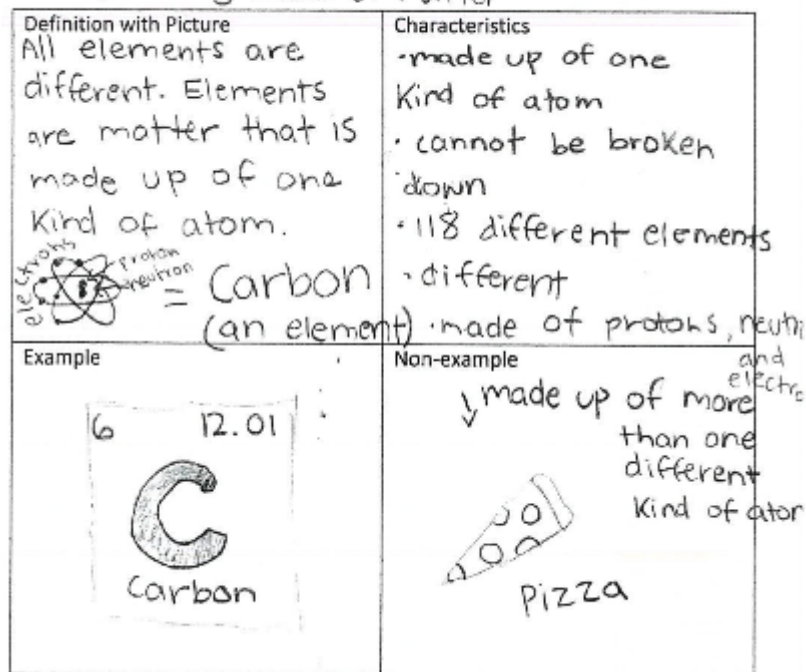 Definition with Picture
All elements are
different. Elements
are matter that is
made up of one
Kind of atom.
electrons
proton
neutron
= Carbon
(an element)
Characteristics
·made up of one
Kind of atom
· cannot be broken
down
· 118 different elements
· different
· made of protons, neutr
and
electro
Example
6 12.01
C
Carbon
Non-example
made up of more
than one
different
Kind of ator
Pizza